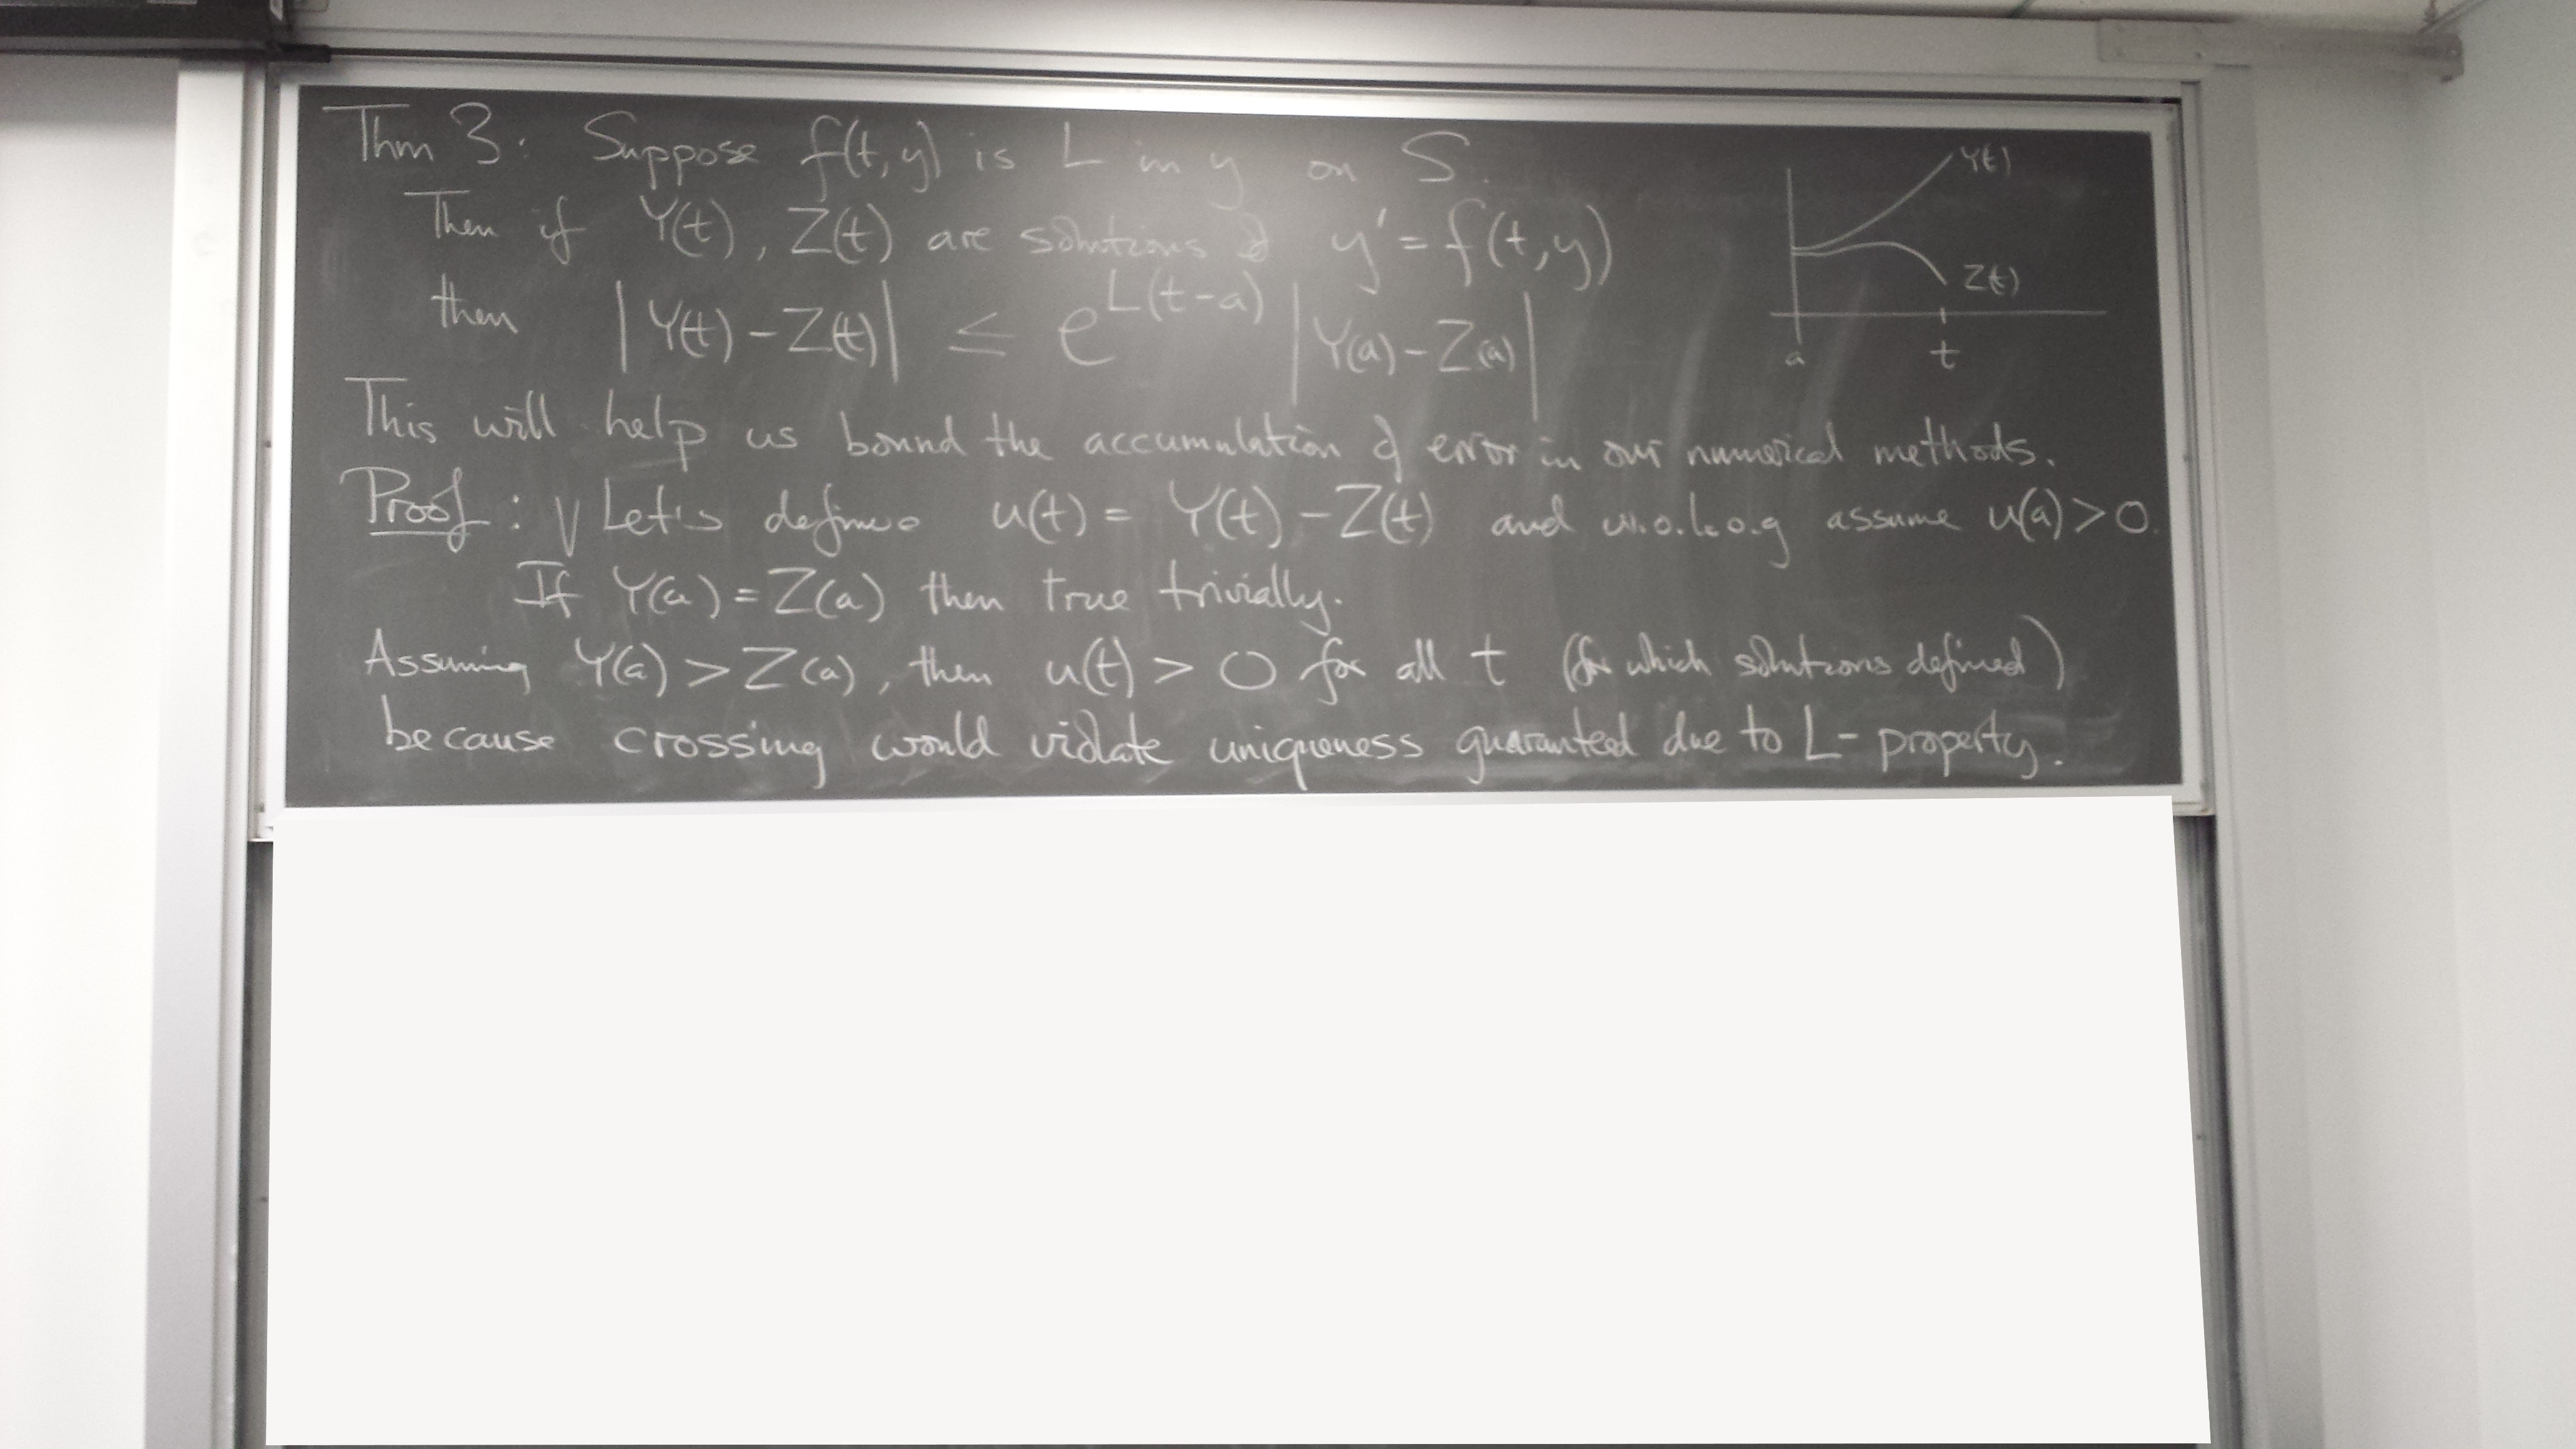 Thm 3: Suppose f(t,y) is L in y on S.
Then if Y(t), Z(t) are solutions of y' = f(t,y)
then |Y(t) - Z(t)| ≤ e^{L(t-a)} |Y(a) - Z(a)|
Y(t)
Z(t)
a t
This will help us bound the accumulation of error in our numerical methods.
Proof: Let's define u(t) = Y(t) - Z(t) and w.o.l.o.g assume u(a) > 0.
If Y(a) = Z(a) then true trivially.
Assuming Y(a) > Z(a), then u(t) > 0 for all t (for which solutions defined)
because crossing would violate uniqueness guaranteed due to L-property.